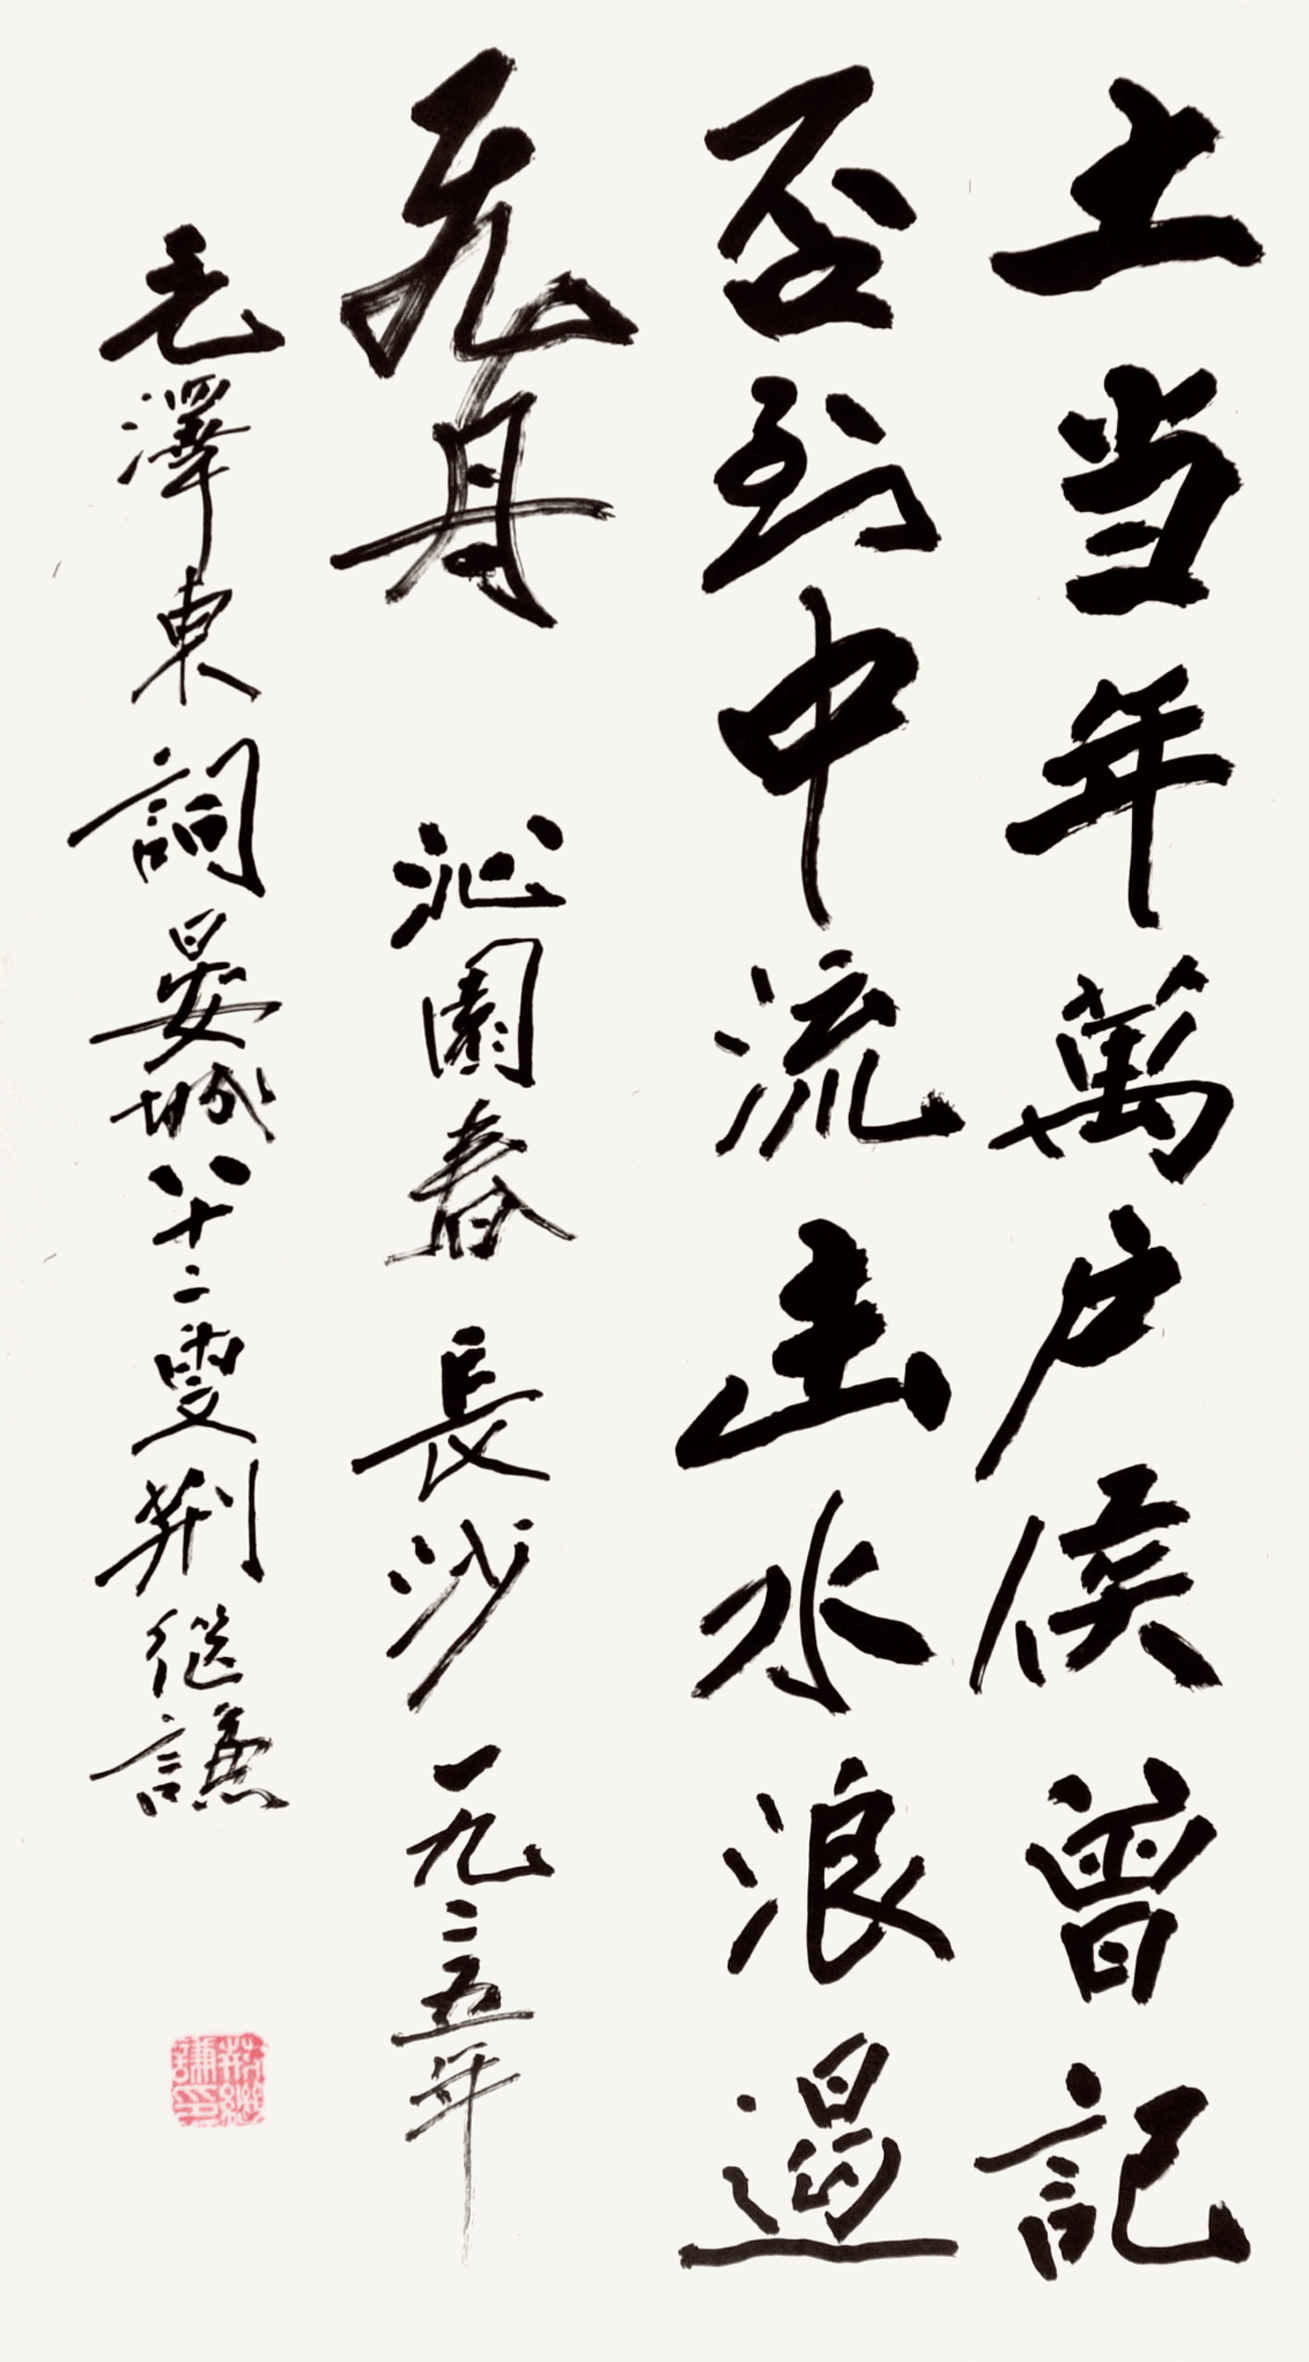 土当年萬户侯曾記
否到中流击水浪遏
飛舟 沁園春 長沙 一九二五年
毛澤東詞晏城八十二叟荆继謙
荆繼謙印